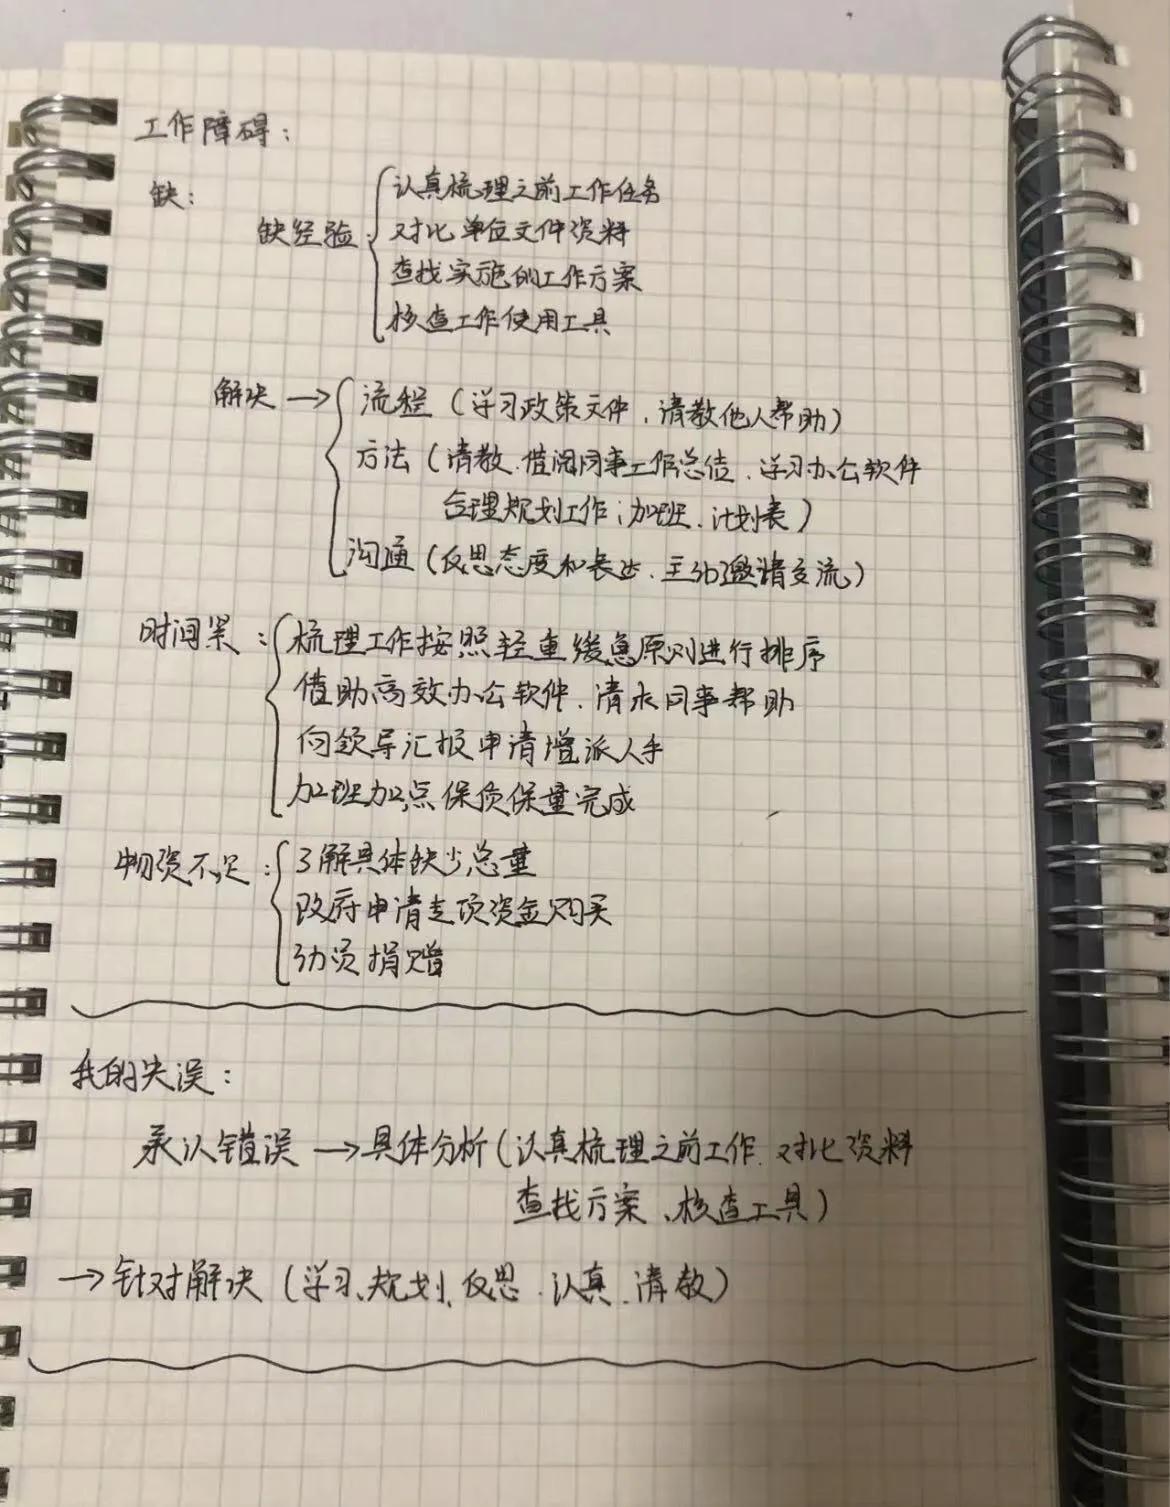 工作障碍：
缺：
缺经验
认真梳理之前工作任务
对比单位文件资料
查找实施的工作方案
核查工作使用工具
解决→ 流程（学习政策文件、请教他人帮助）
方法（请教、借阅同事工作总结、学习办公软件
合理规划工作；加班、计划表）
沟通（反思态度和表达、主动邀请交流）
时间紧：梳理工作按照轻重缓急原则进行排序
借助高效办公软件、请求同事帮助
向领导汇报申请增派人手
加班加点保质保量完成
物资不足：了解具体缺少总量
政府申请专项资金购买
动员捐赠
我的失误：
承认错误→具体分析（认真梳理之前工作、对比资料
查找方案、核查工具）
→针对解决（学习、规划、反思、认真、请教）